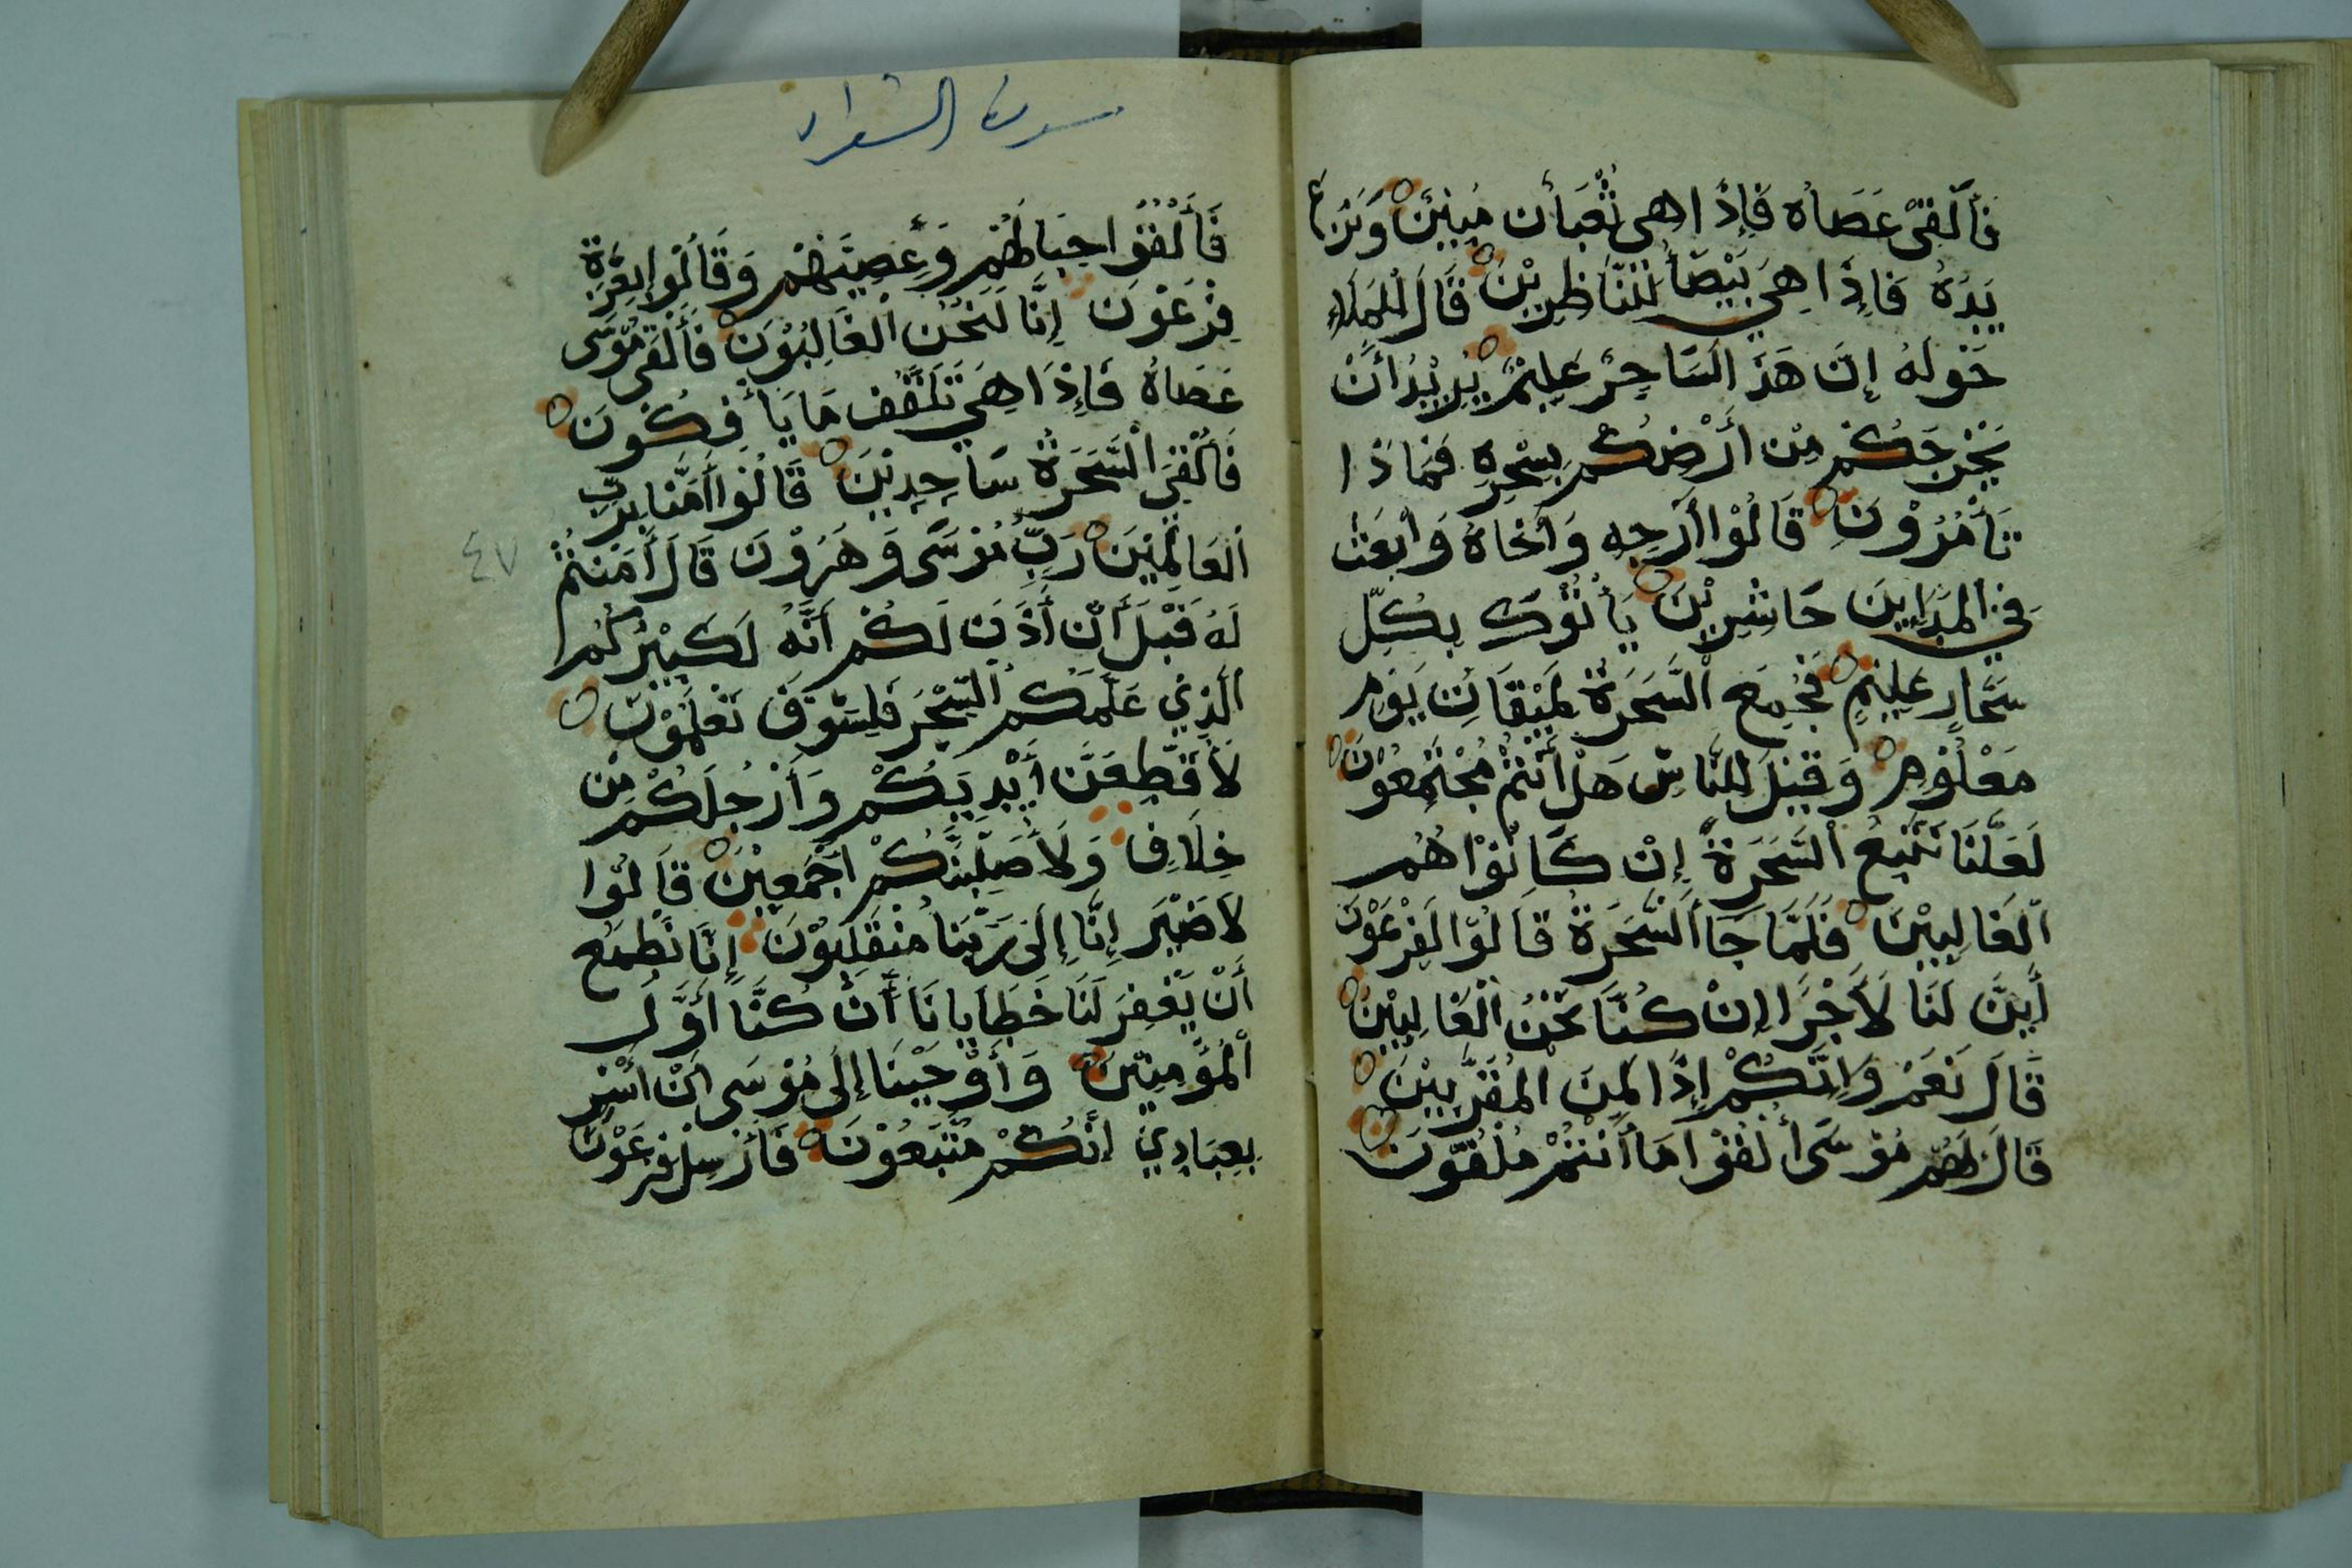 فَأَلْقَىْ عَصَاهُ فَإِذَا هِي ثُعْبَأن مُبِيْنٌ وَنَزَعَ
يَدَهُ فَاِذَا هِيَ بَيْضَأُ لِلنَّاظِرِيْنَ قَالَ لْلِمَلَاءِ
حَوْلَهُ إِنَ هَذَ السَاحِرٌ عَلِيْمٌ يُرِيْدُ أَنْ
يَخْرِجَكُمْ مِنْ أَرْضِكُمْ بِسْحِرِهِ فَمَاذَا
تَأْمُرُوْنَ قَالُوْا أَرْجِهِ وَأَخَاهُ وَأبْعَثْ
فِي المَدَايِنَ حَاشِرِيْنَ يَأْتُوْكَ بِكُلِّ
سَحَّارٍ عَلِيْمٍ فَجُمِعَ السَّحَرَةُ لِمَيْقَاتِ يَوْمٍ
مَعْلُوْمٍ وَقِيْلَ لِلنَّاسِ هَلْ أَنْتُمْ مُجْتَمِعُوْنَ
لَعَلَّنَا نَتَّبِعُ السَّحَرَةَ إِنْ كَانُوْا هُمُ
اْلغَالِبِيْنَ فَلَمَّا جَاَ السَّحَرَةُ قَالُوْا لِفِرْعَوْنَ
أَيِنَّ لَنَا لَأَجْرًا إِنْ كُنَّا نَحْنُ اْلغَالِبِيْنَ
قَالَ نَعَمْ وَإِنَّكُمْ إِذًا لَمِنَ الْمُقَرَّبِيْنَ
قَالَ لَهُمْ مُوْسَىْ أَلْقُوْا مَا أَنْتُمْ مُلْقُوْنَ
سورة الشعراء
فَأَلْقَوْا حِبَالَهُمْ وَعِصِيَّهُمْ وَقَالُوْا بِعِزَّةِ
فِرْعَوْنَ إِنَّا لَنَحْنُ اْلغَالِبُوْنَ فَأَلْقَى مُوْسَى
عَصَاهُ فَإِذَا هِيَ تَلْقَّفُ مَا يَأْفِكُوْنَ
فَأُلْقِيَ السَّحَرَةُ سَاجِدِيْنَ قَالُوْا أَمَنَّا بِرَبِّ
اْلعَالَمِيْنَ رَبِّ مُوْسَى وَهَرُوْنَ قَالَ أَمَنْتُمْ
٤٧
لَهُ قَبْلَ أَنْ أَذَنَ لَكُمْ أَنَّهُ لَكَبِيْرُكُمُ
الَّذِيْ عَلَّمَكُمُ السِّحْرَ فَلَسَوْفَ تَعْلَمُوْنَ
لَأَقَطِّعَنَّ أَيْدِيَكُمْ وَأَرْجُلَكُمْ مِنْ
خِلَافٍ وَلَأُصَلِّبَنَّكُمْ اَجْمَعِيْنَ قَالُوْا
لَاضَيْرَ إِنَّا إِلَى رَبِّنَا مُنْقَلِبُوْنَ إِنَّا نَطْمَعُ
أَنْ يَّغْفِرَ لَنَا خَطَايَانَا أَنْ كُنَّا أَوَّلَ
اْلمُؤْمِنِيْنَ وَأَوْحَيْنَا إِلَى مُوْسَى اَنْ أَسْرِ
بِعِبَادِيْ اَنَّكُمْ مُتَّبَعُوْنَ فَأَرْسِلَ فِرْعَوْنَ